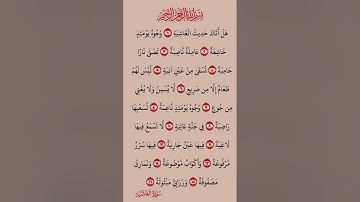 بسم الله الرحمن الرحيم
هَلْ أَتَاكَ حَدِيثُ الْغَاشِيَةِ وُجُوهٌ يَوْمَئِذٍ
خَاشِعَةٌ عَامِلَةٌ نَاصِبَةٌ تَصْلَى نَارًا
حَامِيَةً تُسْقَى مِنْ عَيْنٍ آنِيَةٍ لَيْسَ لَهُمْ
طَعَامٌ إِلَّا مِن ضَرِيعٍ لَا يُسْمِنُ وَلَا يُغْنِي
مِن جُوعٍ وُجُوهٌ يَوْمَئِذٍ نَاعِمَةٌ لِسَعْيِهَا
رَاضِيَةٌ فِي جَنَّةٍ عَالِيَةٍ لَا تَسْمَعُ فِيهَا
لَاغِيَةً فِيهَا عَيْنٌ جَارِيَةٌ فِيهَا سُرُرٌ
مَرْفُوعَةٌ وَأَكْوَابٌ مَوْضُوعَةٌ وَنَمَارِقُ
مَصْفُوفَةٌ وَزَرَابِيُّ مَبْثُوثَةٌ
سورة الغاشية